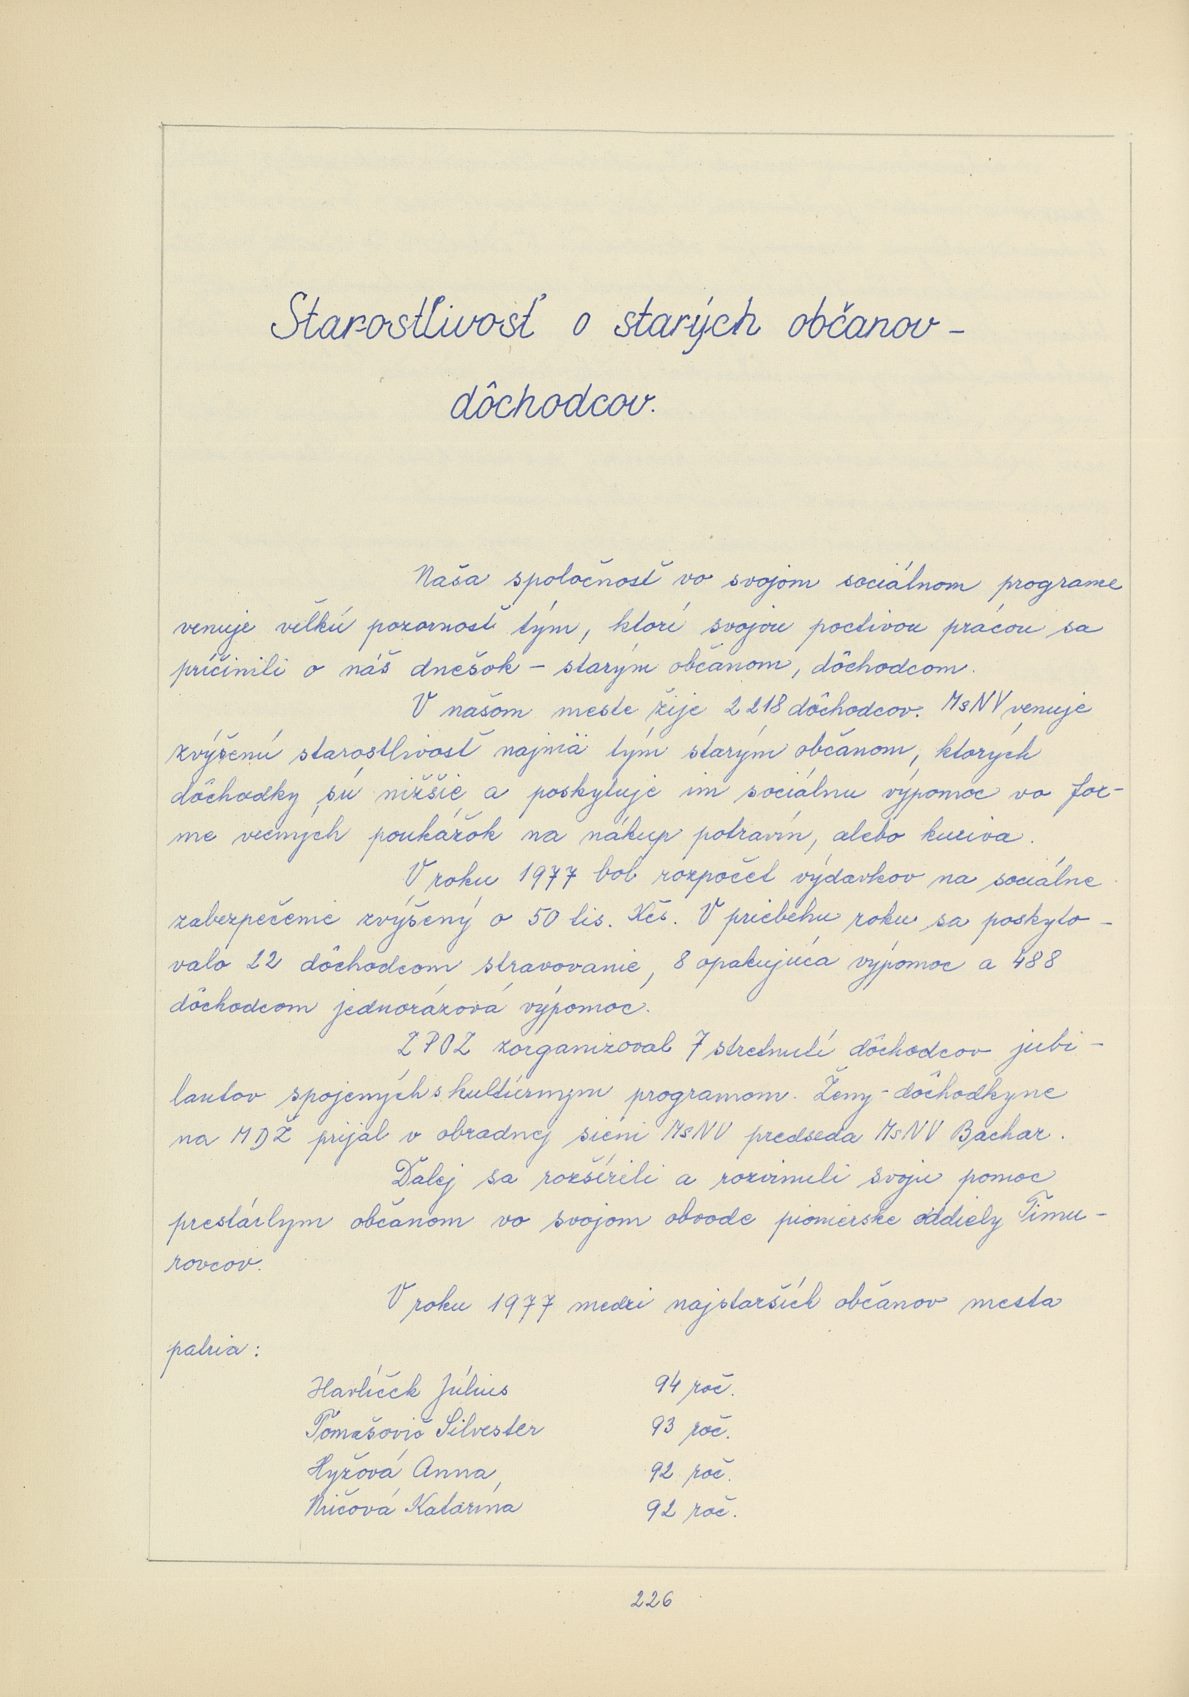 Starostlivosť o starých občanov –
dôchodcov.
Naša spoločnosť vo svojom sociálnom programe
venuje veľkú pozornosť tým, ktorí svojou poctivou prácou sa
pričinili o náš dnešok – starým občanom, dôchodcom.
V našom meste žije 2 218 dôchodcov. MsNV venuje
zvýšenú starostlivosť najmä tým starým občanom, ktorých
dôchodky sú nižšie a poskytuje im sociálnu výpomoc vo for-
me vecných poukážok na nákup potravín, alebo kuriva.
V roku 1977 bol rozpočet výdavkov na sociálne
zabezpečenie zvýšený o 50 tis. Kčs. V priebehu roku sa poskyto-
valo 22 dôchodcom stravovanie, 8 opakujúca výpomoc a 488
dôchodcom jednorázová výpomoc.
ZPOZ zorganizoval 7 stretnutí dôchodcov jubi-
lantov spojených s kultúrnym programom. Ženy-dôchodkyne
na MDŽ prijal v obradnej sieni MsNV predseda MsNV Bachar.
Ďalej sa rozšírili a rozvinuli svoju pomoc
prestárlym občanom vo svojom obvode pionierske oddiely Timu-
rovcov.
V roku 1977 medzi najstarších občanov mesta
patria:
Havlíček Július 94 roč.
Tomašovič Silvester 93 roč.
Hyžová Anna 92 roč.
Mičová Katarína 92 roč.
226